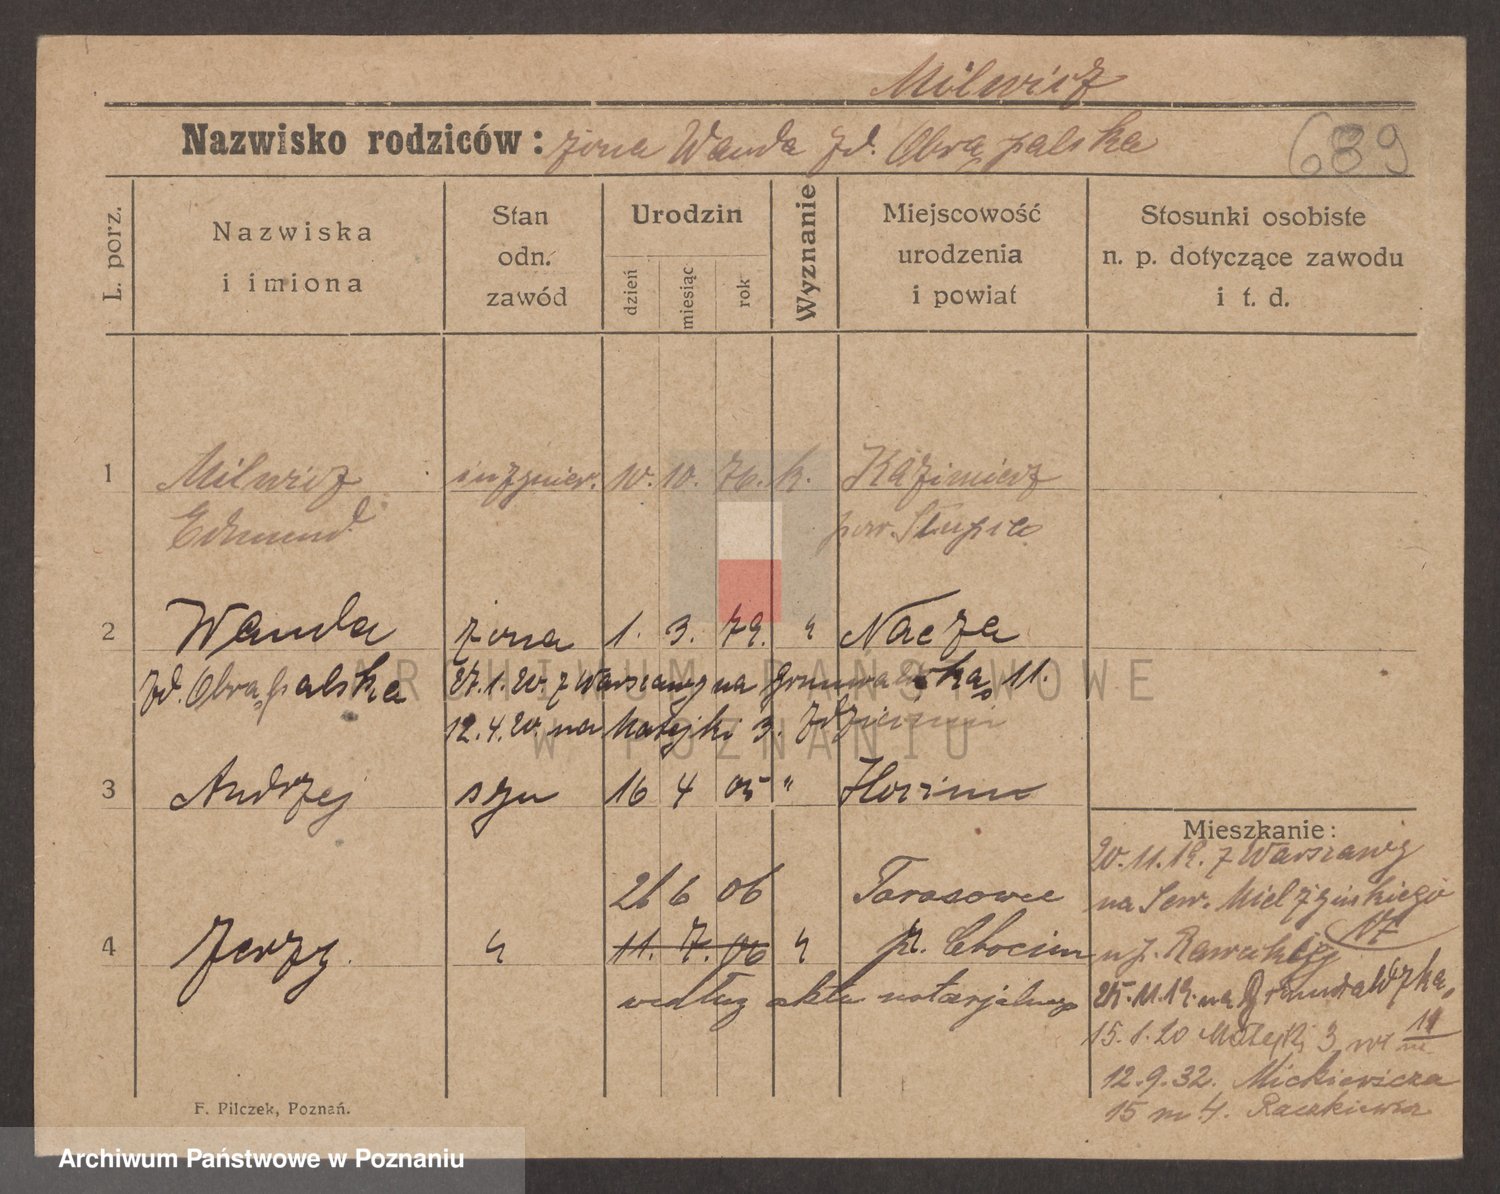 Milewicz
Nazwisko rodziców: żona Wanda zd. Obrąpalska
689
L. porz.
Nazwiska i imiona
Stan odn. zawód
Urodzin
dzień
miesiąc
rok
Wyznanie
Miejscowość urodzenia i powiat
Stosunki osobiste n. p. dotyczące zawodu i t. d.
1 Milewicz inżynier. 10. 10. 76. k. Kazimierz
Edmund pow. Słupca
2 Wanda żona 1. 3. 79. " Nacza
zd. Obrąpalska 27.1.20. z Warszawy na Grunwaldzką 11.
12.4.20. na Matejki 3.
3 Andrzej syn 16 4 05 "
26 6 06 Tarasowce
4 Jerzy. " 11. 7. 06 " p. Chocim
według aktu notarjalnego
Mieszkanie:
20.11.19. z Warszawy
na Sew. Mielżyńskiego
17
u p. Rawickiej
25.11.19. na Grunwaldzką,
15.1.20 Matejki 3
12.9.32. Mickiewicza
15 m 4.
F. Pilczek, Poznań.
ARCHIWUM PAŃSTWOWE
W POZNANIU
Archiwum Państwowe w Poznaniu